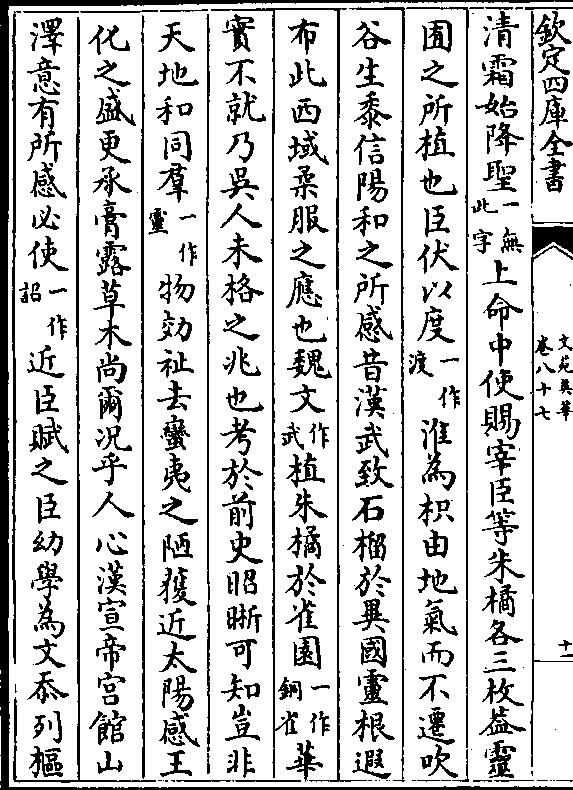 欽定四庫全書
文苑英華
卷八十七
十一
清霜始降聖一無此字上命中使賜宰臣等朱橘各三枚葢靈
囿之所植也臣伏以度一作渡淮為枳由地氣而不遷吹
谷生黍信陽和之所感昔漢武致石榴於異國靈根遐
布此西域柔服之應也魏文作武植朱橘於雀園一作銅雀華
實不就乃吳人未格之兆也考於前史昭晰可知豈非
天地和同羣一作靈物効祉去蠻夷之陋獲近太陽感王
化之盛更承膏露草木尚爾況乎人心漢宣帝宮館山
澤意有所感必使一作詔近臣賦之臣幼學為文忝列樞